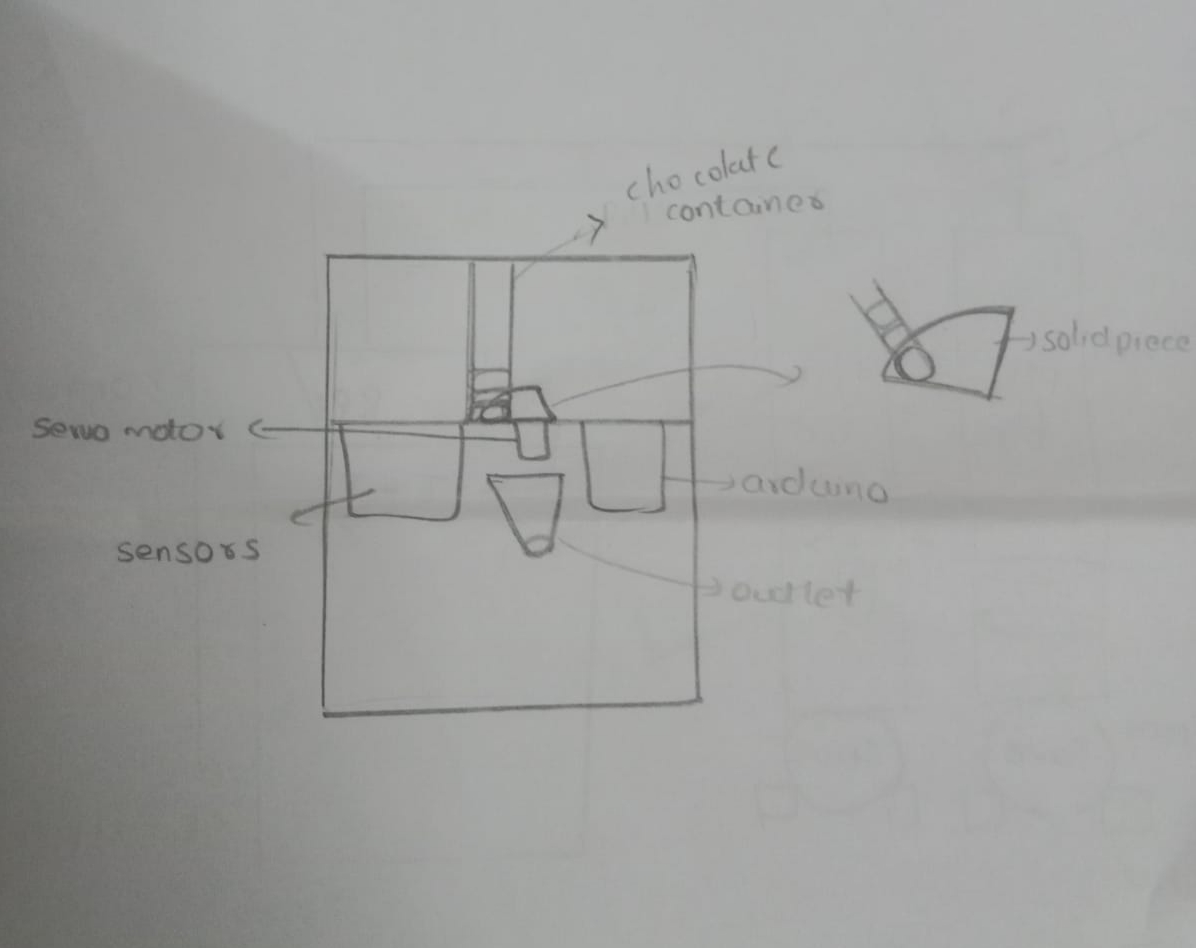 chocolate
container
solid piece
servo motor
arduino
sensors
outlet